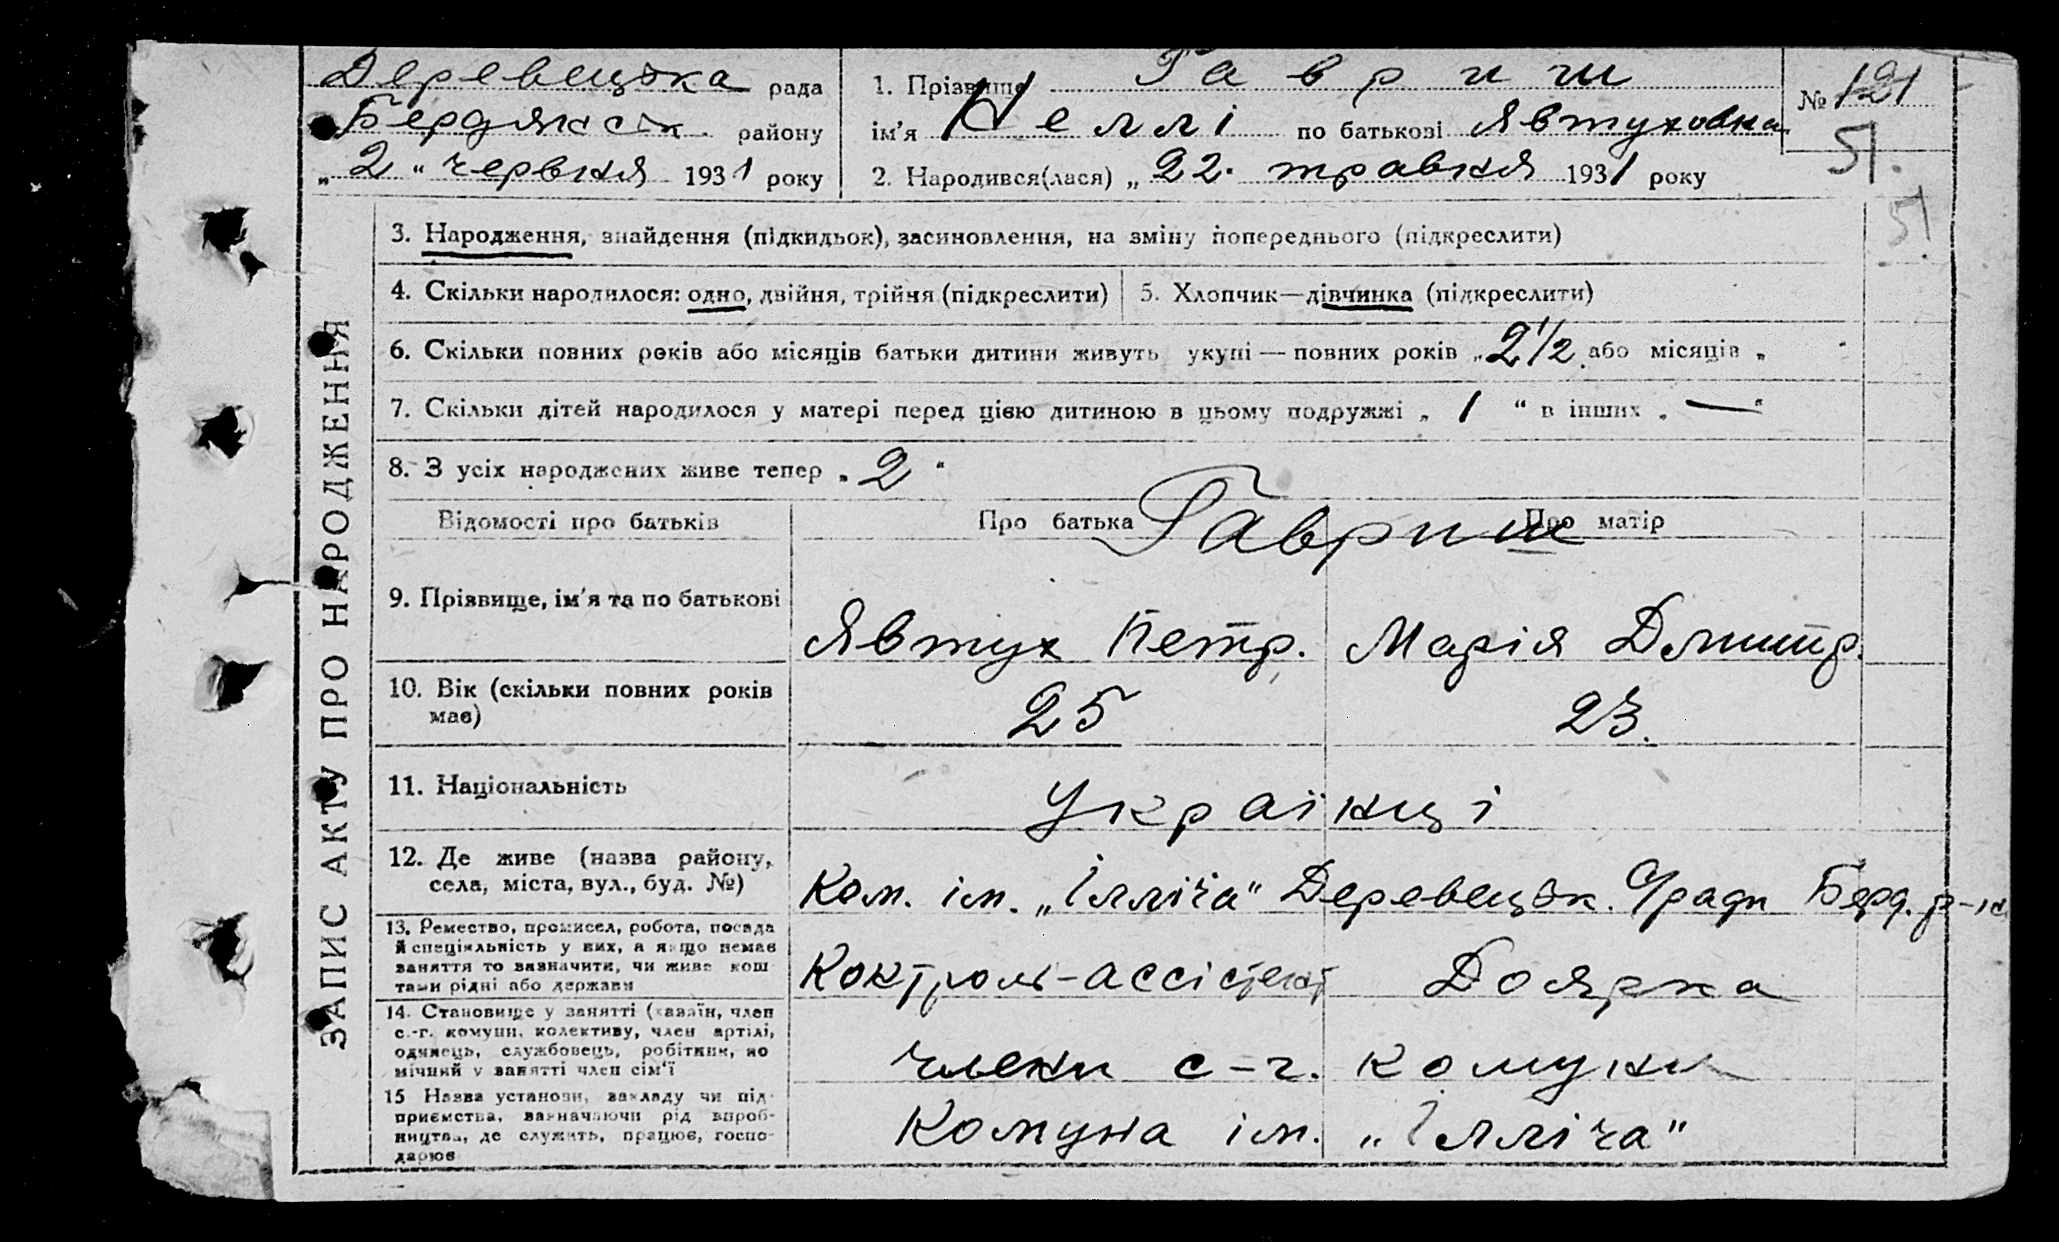 Деревецька рада
Бердянськ. району
„ 2 “ червня 1931 року
1. Прізвище Гавриш
ім'я Неллі по батькові Явтуховна
2. Народився(лася) „ 22. травня 1931 року
№ 121
51.
51
ЗАПИС АКТУ ПРО НАРОДЖЕННЯ
3. Народження, знайдення (підкидьок), засиновлення, на зміну попереднього (підкреслити)
4. Скільки народилося: одно, двійня, трійня (підкреслити)
5. Хлопчик—дівчинка (підкреслити)
6. Скільки повних років або місяців батьки дитини живуть укупі — повних років „ 2 1/2 або місяців „
7. Скільки дітей народилося у матері перед цією дитиною в цьому подружжі „ 1 “ в інших „ — “
8. З усіх народжених живе тепер „ 2 “
Відомості про батьків Про батька Про матір
Гавриш
9. Прізвище, ім'я та по батькові
Явтух Петр. Марія Дмитр.
10. Вік (скільки повних років має)
25 23.
11. Національність
Українці
12. Де живе (назва району,
села, міста, вул., буд. №)
Ком. ім. „Ілліча“ Деревецьк. С/ради Берд. р-н
13. Ремество, промисел, робота, посада
й спеціяльність у них, а якщо немає
заняття то зазначити, чи живе кош
тами рідні або держави
Контроль-ассістент Доярка
14. Становище у занятті (хазяїн, член
с.-г. комуни, колективу, член артілі,
одинець, службовець, робітник, по
мічний у занятті член сім'ї
члени с-г. комуни
15 Назва установи, закладу чи під-
приємства, зазначаючи рід вироб-
ництва, де служить, працює, госпо-
дарює
Комуна ім. „Ілліча“